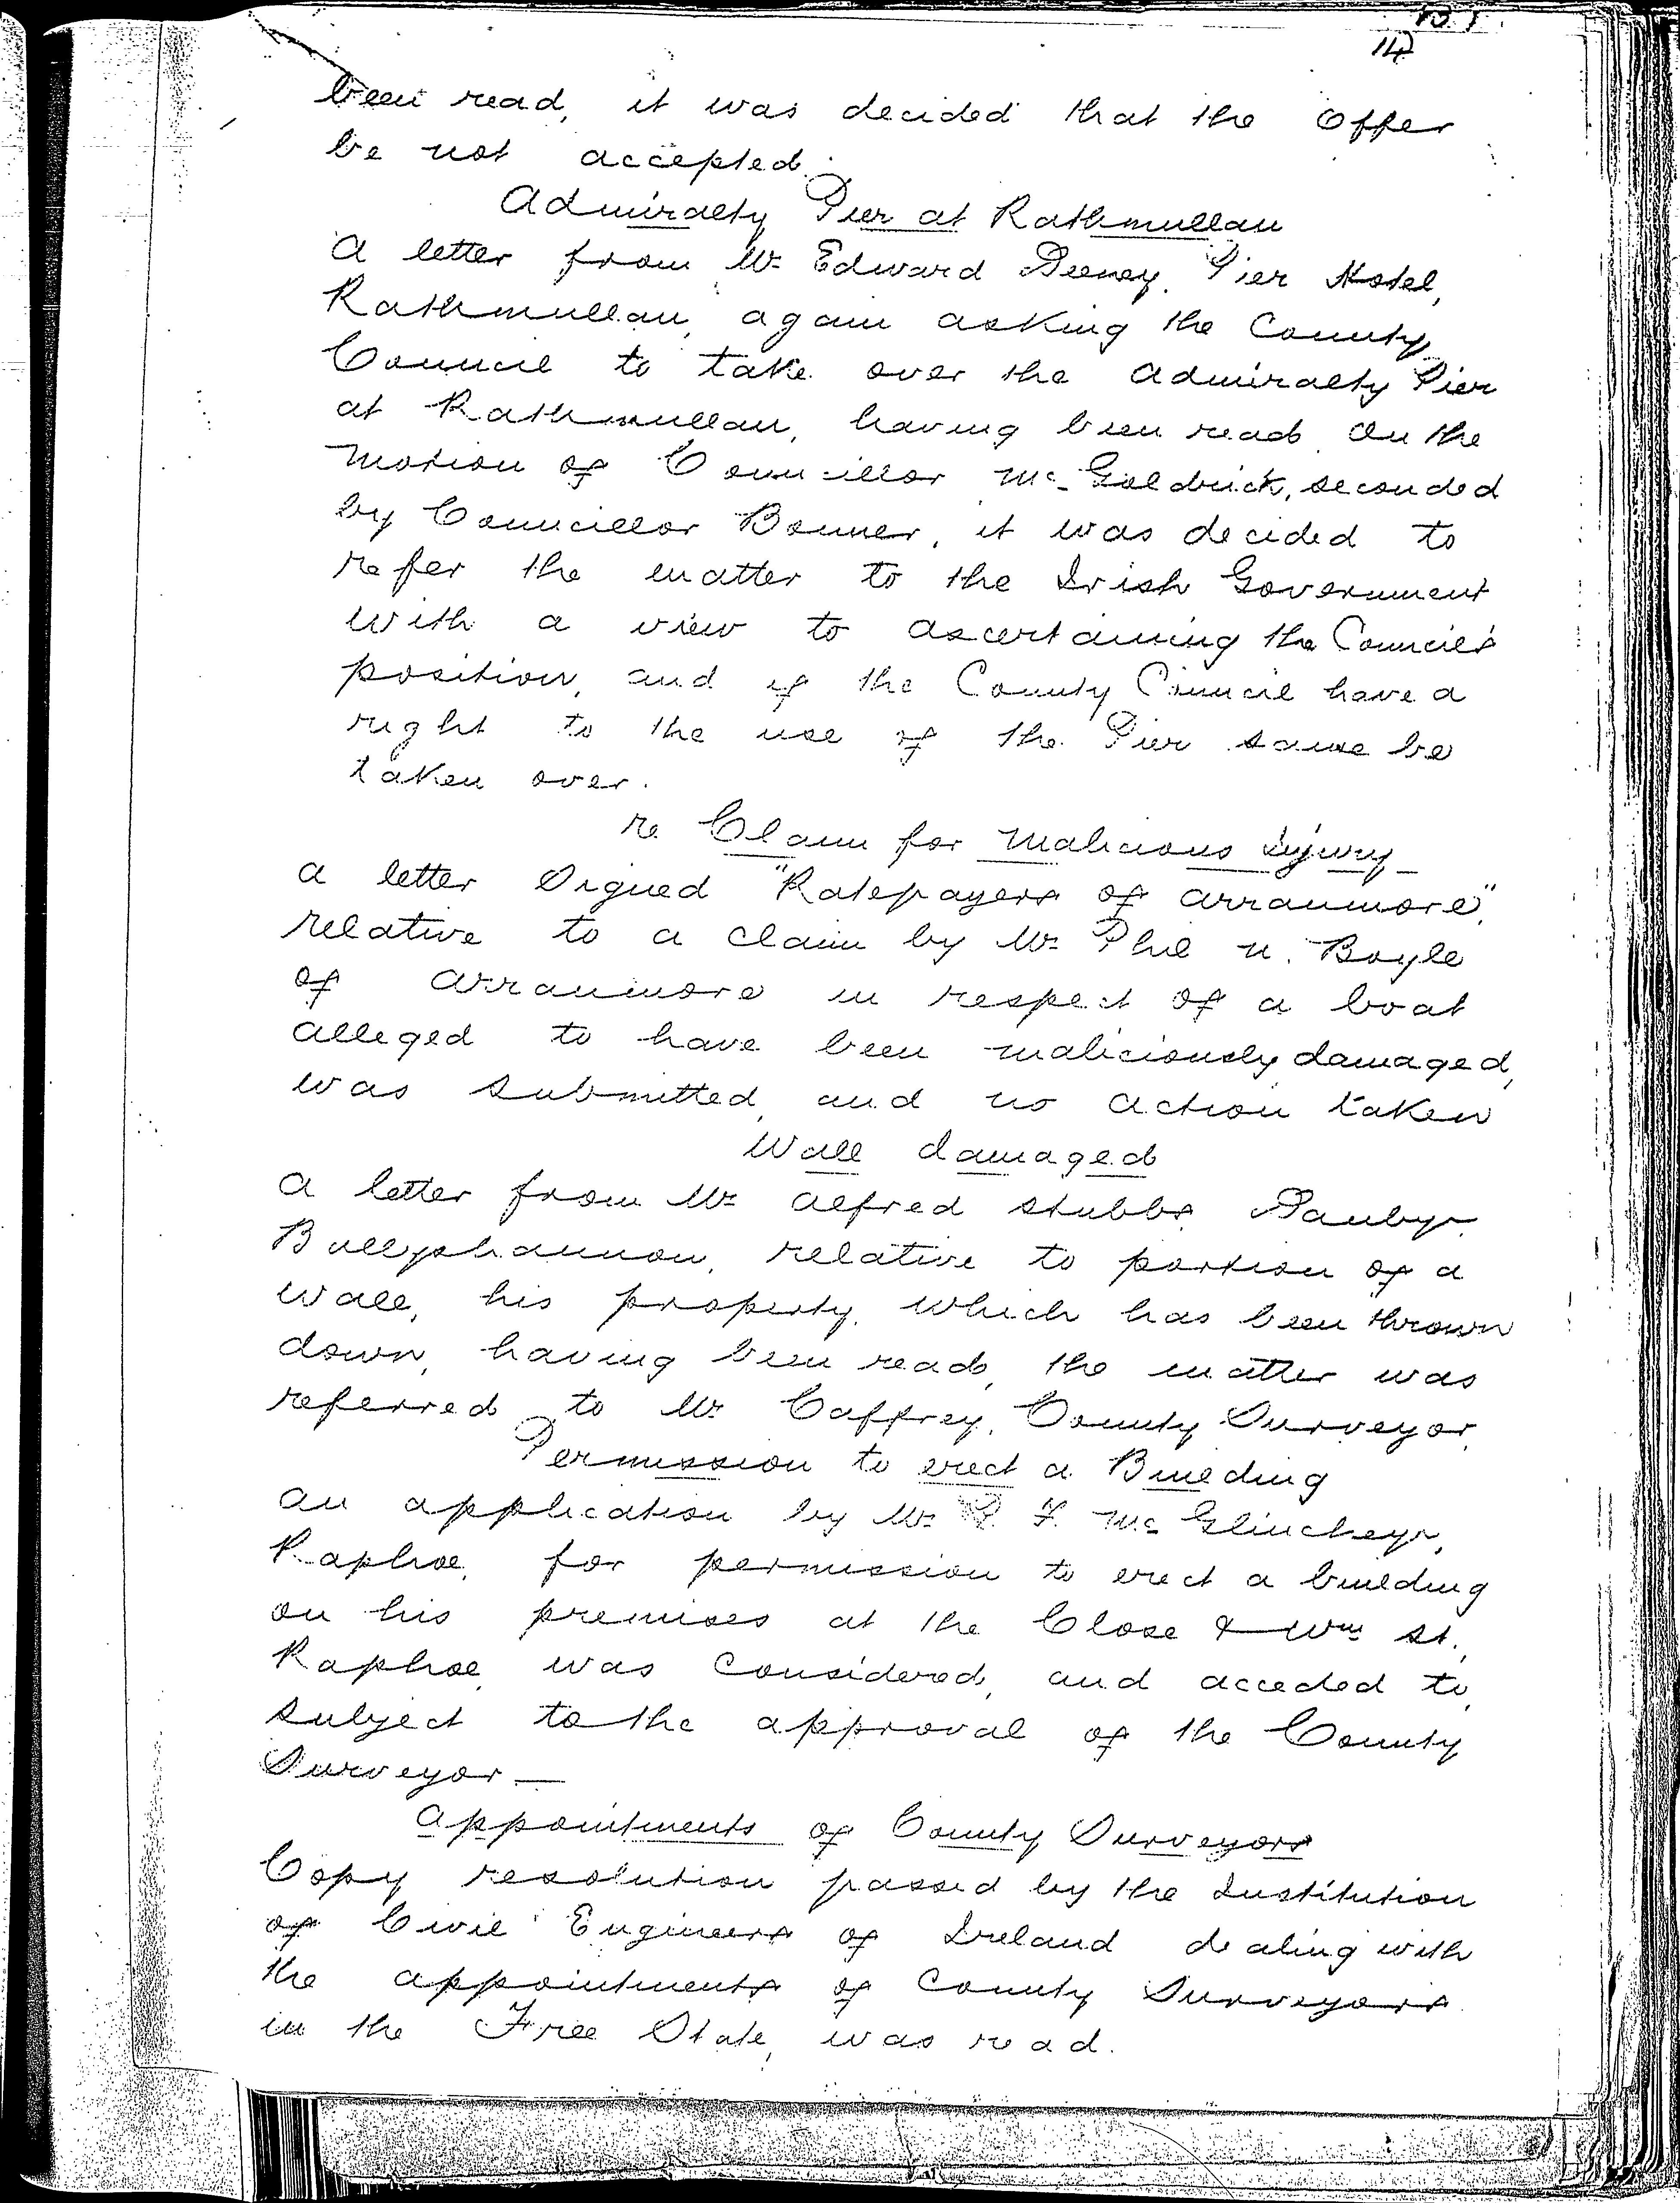 14
been read, it was decided that the Offer
be not accepted.
Admiralty Pier at Rathmullan
A letter from Mr Edward Deeney, Pier Hotel,
Rathmullan, again asking the County
Council to take over the Admiralty Pier
at Rathmullan, having been read, On the
motion of Councillor McGoldrick, seconded
by Councillor Bonner, it was decided to
refer the matter to the Irish Government
with a view to ascertaining the Council's
position, and if the County Council have a
right to the use of the Pier same be
taken over.
re Claim for Malicious Injury
A letter Signed "Ratepayers of Arranmore",
relative to a claim by Mr Phil n. Boyle
of Arranmore in respect of a boat
alleged to have been maliciously damaged,
was submitted, and no action taken
Wall damaged
A letter from Mr Alfred Stubbs, Danby,
Ballyshannon, relative to portion of a
wall, his property, which has been thrown
down, having been read, the matter was
referred to Mr Caffrey, County Surveyor.
Permission to erect a Building
An application by Mr P. F. McGlinchey,
Raphoe, for permission to erect a building
on his premises at the Close & Wm St.,
Raphoe, was considered, and acceded to,
subject to the approval of the County
Surveyor —
Appointments of County Surveyors
Copy resolution passed by the Institution
of Civil Engineers of Ireland dealing with
the appointments of County Surveyors
in the Free State, was read.